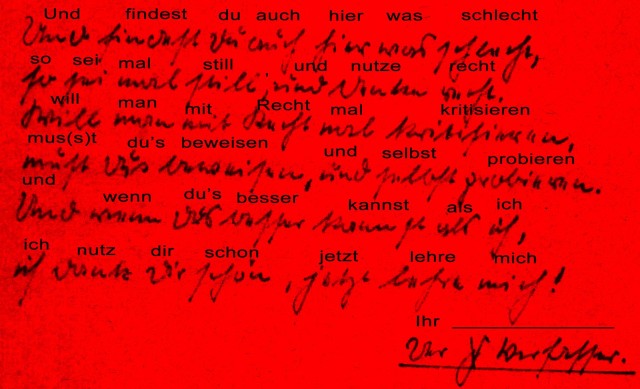 Und findest du auch hier was schlecht
Und findest du auch hier was schlecht,
so sei mal still und nutze recht
so sei mal still, und recht.
will man mit Recht mal kritisieren
Will man mit Recht mal kritisieren,
mus(s)t du's beweisen und selbst probieren
mußt du's beweisen, und selbst probieren.
und wenn du's besser kannst als ich
Und wenn du's besser kannst als ich,
ich nutz dir schon jetzt lehre mich
ich danke dir schön, jetzt lehre mich!
Ihr
Der Verfasser.